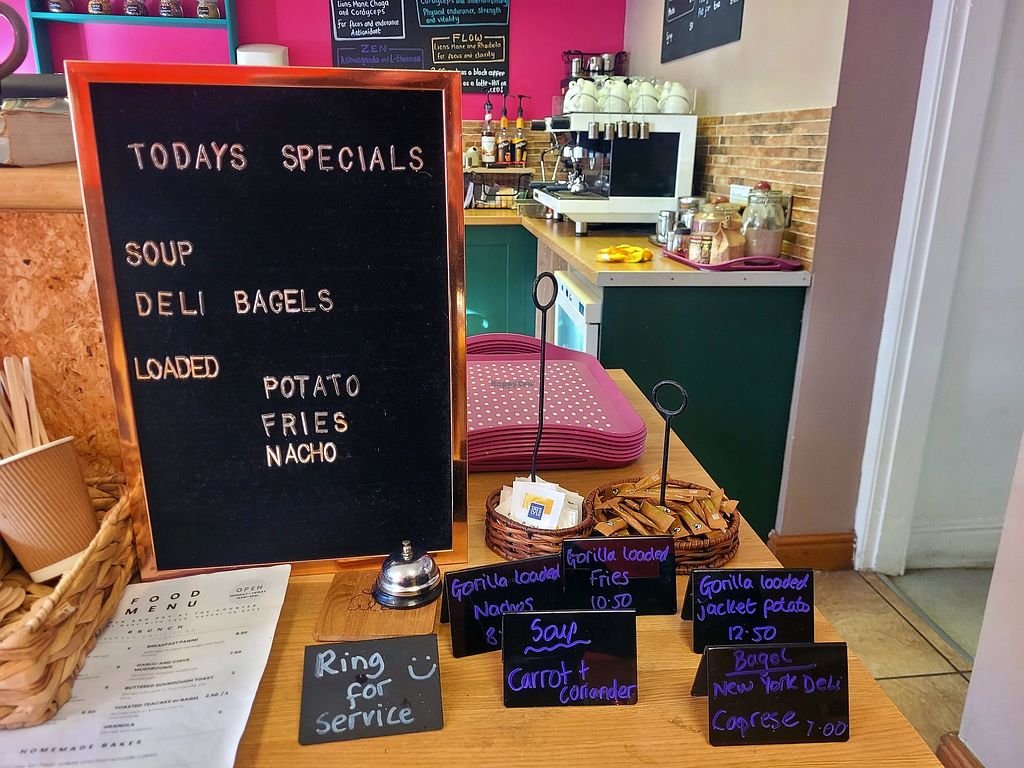 Lions Mane Chaga
and Cordyceps
for focus and endurance
Antioxidant
Physical endurance, strength
and vitality
ZEN
Ashwaganda and L-theanine
FLOW
Lions Mane and Rhodiola
for focus and clarity
TODAYS SPECIALS
SOUP
DELI BAGELS
LOADED
POTATO
FRIES
NACHO
HappyCow
Gorilla loaded
Fries
10.50
Gorilla loaded
Nachos
8
Gorilla loaded
jacket potato
12.50
Soup
Carrot +
coriander
Bagel
New York Deli
Caprese 7.00
Ring
for
Service
FOOD
MENU
OPEN
BRUNCH
BREAKFAST PANINI 8.50
GARLIC AND CHIVE
MUSHROOMS 7.50
BUTTERED SOURDOUGH TOAST
TOASTED TEACAKE or BAGEL
GRANOLA
HOMEMADE BAKES